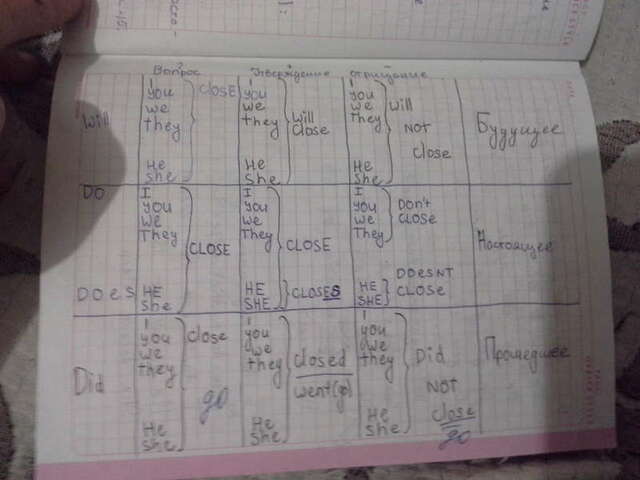 Вопрос Утверждение отрицание
Will
I
you
we
they
He
she
close
I
you
we
they
He
she
will
close
I
you
we
they
He
she
will
NOT
close
Будущее
DO
DOes
I
you
we
They
HE
she
CLOSE
I
you
we
They
HE
SHE
CLOSE
CLOSES
I
you
we
They
DON'T
CLOSE
HE
SHE
DOESNT
CLOSE
Настоящее
Did
I
you
we
they
He
she
close
go
I
you
we
they
He
she
closed
went(go)
I
you
we
they
He
she
Did
NOT
close
go
Прошедшее